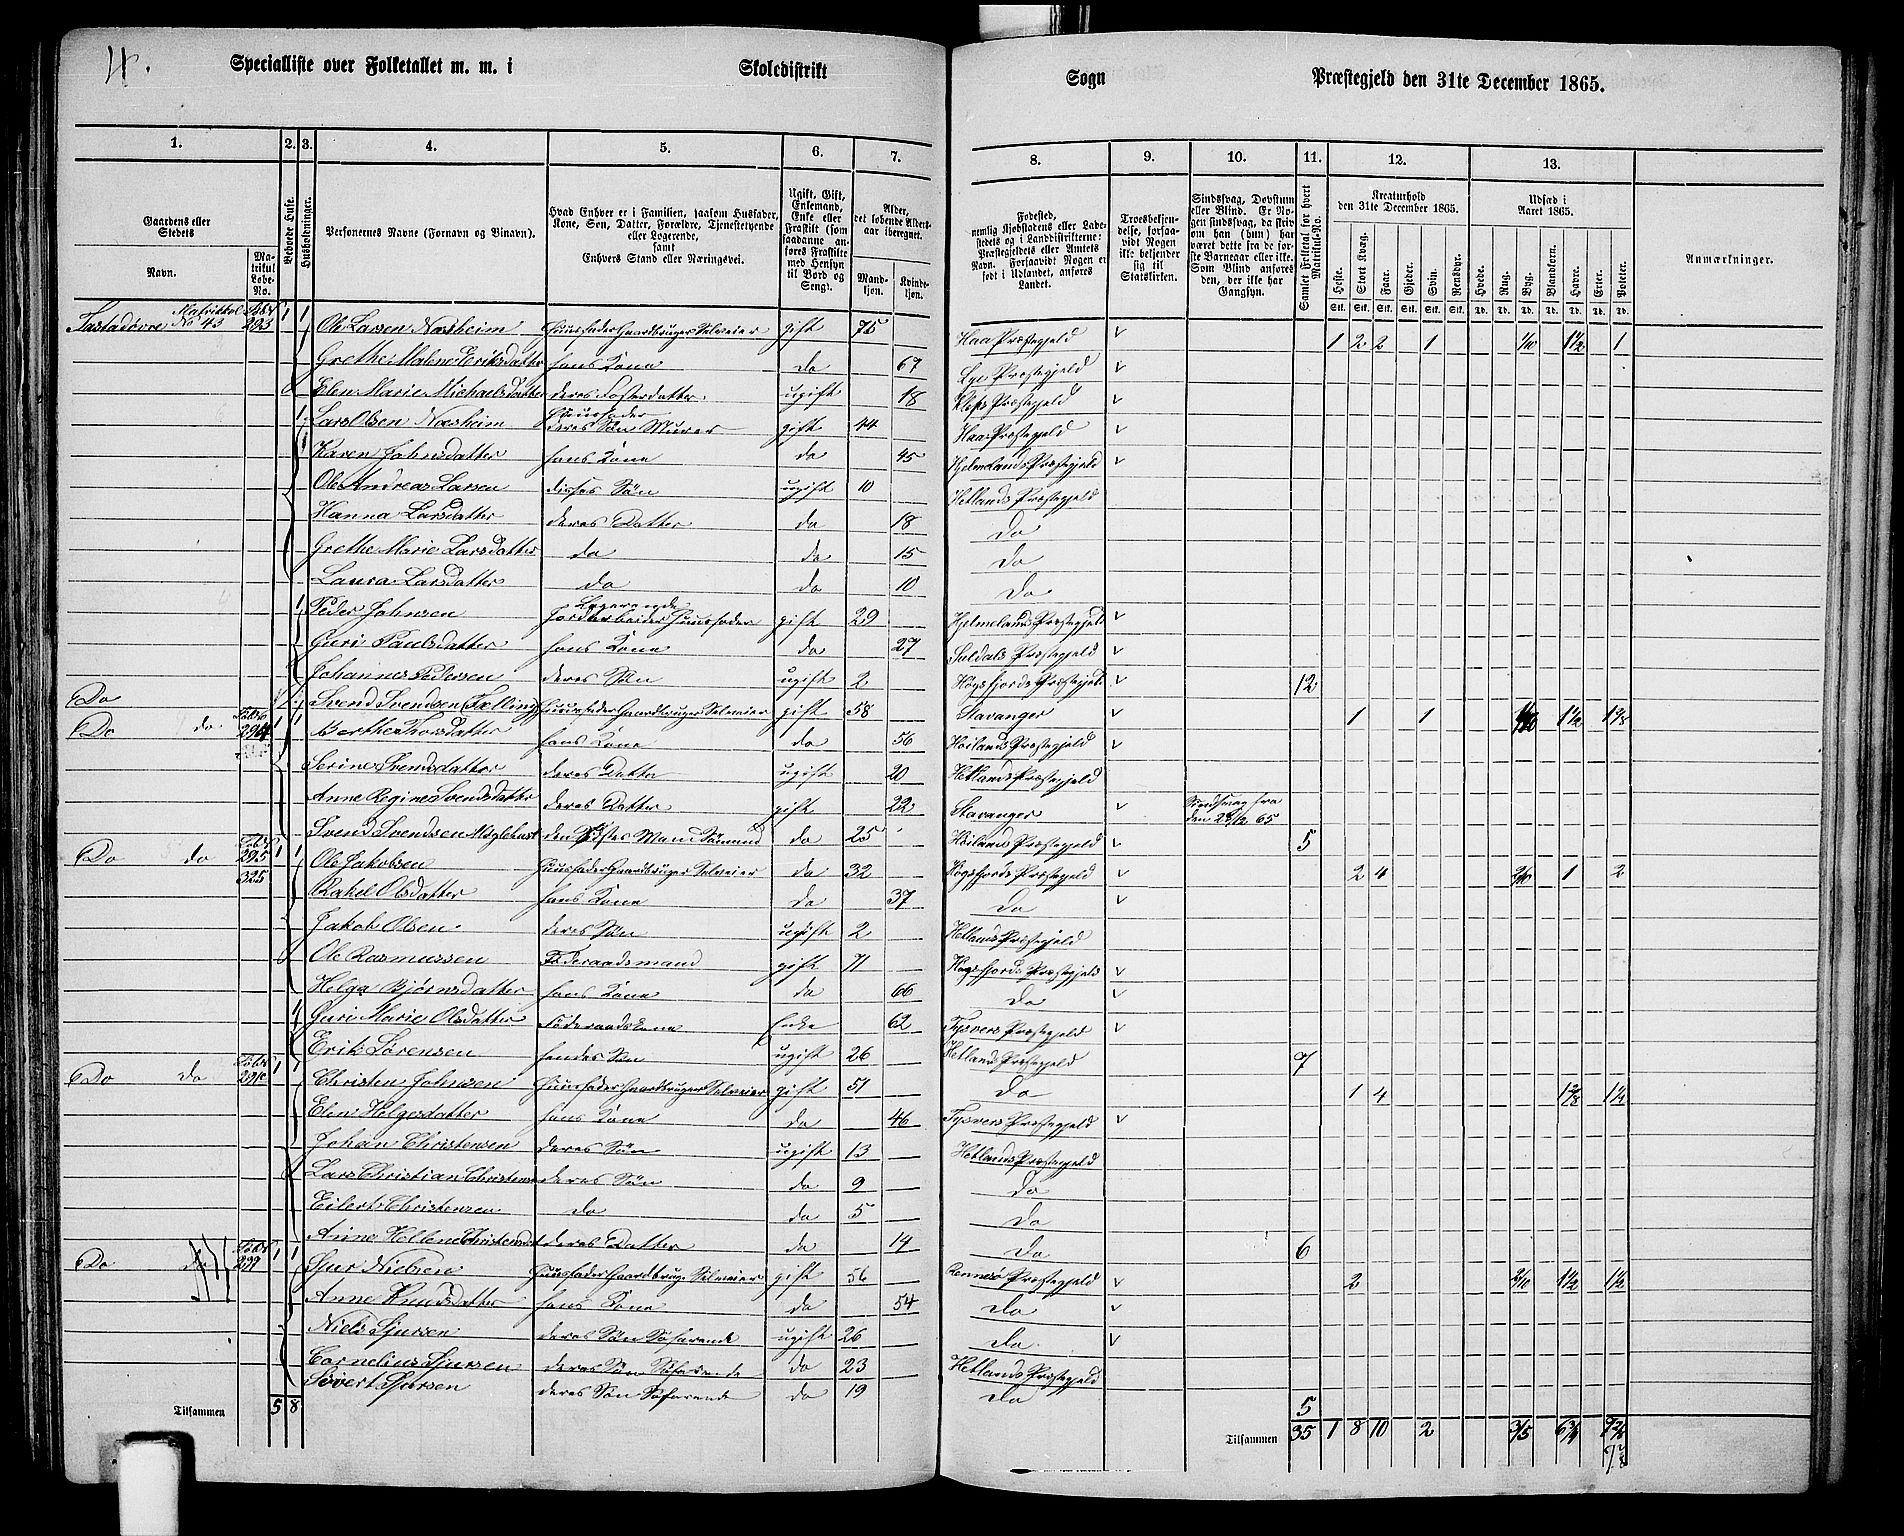 4.
Specialliste over Folketallet m. m. i Skoledistrikt Sogn Præstegjeld den 31te December 1865.
1. 2. 3. 4. 5. 6. 7. 8. 9. 10. 11. 12. 13.
Gaardens eller Stedets
Navn.
Matrikul Løbe-No.
Beboede Huse.
Huusholdninger.
Personernes Navne (Fornavn og Binavn).
Hvad Enhver er i Familien, saasom Husfader, Kone, Søn, Datter, Forældre, Tjenestetyende eller Logerende, samt Enhvers Stand eller Næringsvei.
Ugift, Gift, Enkemand, Enke eller Fraskilt (som saadanne anføres Fraskilte med Hensyn til Bord og Seng).
Alder, det løbende Aldersaar iberegnet.
Mandkjøn. Kvindekjøn.
Fødested, nemlig Kjøbstadens eller Ladestedets og i Landdistrikterne: Præstegjeldets eller Amtets Navn. Forsaavidt Nogen er født i Udlandet, anføres Landet.
Troesbekjendelse, forsaavidt Nogen ikke bekjender sig til Statskirken.
Sindssvag, Døvstum eller Blind. Er Nogen sindssvag, da skrives om han (hun) har været dette fra de første Barneaar eller ikke. Som Blind anføres den, der ikke har Gangsyn.
Samlet Folketal for hvert Matrikul-No.
Kreaturhold den 31te December 1865.
Heste. Stort Kvæg. Faar. Gjeder. Svin. Rensdyr.
Udsæd i Aaret 1865.
Hvede. Rug. Byg. Blandkorn. Havre. Erter. Poteter.
Anmærkninger.
Matrikkel No 43 293 1 1 Ole Larsen Næsheim Huusfader Gaardbruger Selveier gift 75 Haa Præstegjeld 1 2 2 1 1/10 1 1/2 1
Grethe Malene Eriksdatter hans Kone do 67 Lye Præstegjeld
Elen Marie Michaelsdatter deres Fosterdatter ugift 18 Klep Præstegjeld
1 Lars Olsen Næsheim Huusfader deres Søn Murer gift 44 Haa Præstegjeld
Karen Johnsdatter hans Kone do 45 Hjelmelands Præstegjeld
Ole Andreas Larsen disses Søn ugift 10 Hetlands Præstegjeld
Hanna Larsdatter deres Datter do 18 Do
Grethe Marie Larsdatter do do 15 Do
Laura Larsdatter do do 10 Do
1 Peder Johnsen Logerende Jordarbeider Huusfader gift 29 Hjelmelands Præstegjeld
Guri Paulsdatter hans Kone do 27 Suldals Præstegjeld
Johannes Pedersen deres Søn ugift 2 Høgsfjords Præstegjeld 12
Do Svend Svendsen Huusfader Gaardbruger Selveier gift 58 Stavanger 1 1 1 1/2 1 2/8
Do do 294 1 1 Berthe Thorsdatter hans Kone do 56 Høilands Præstegjeld
Serine Svendsdatter deres Datter ugift 20 Hetlands Præstegjeld
Anne Regine Svendsdatter deres Datter gift 22 Stavanger Sindssvag fra den 29/12 65
Svend Svendsen do 25 Høilands Præstegjeld 5
Do do 295 325 1 1 Ole Jakobsen Huusfader Gaardbruger Selveier do 32 Høgsfjords Præstegjeld 2 4 2/10 1 2
Rakel Olsdatter hans Kone do 37 Do
Jakob Olsen deres Søn ugift 2 Hetlands Præstegjeld
Ole Rasmussen Føderaadsmand gift 71 Høgsfjords Præstegjeld
Helga Bjørnsdatter hans Kone do 66 Do
1 Guri Marie Olsdatter Føderaadskone Enke 62 Tysvers Præstegjeld
Erik Sørensen hendes Søn ugift 26 Hetlands Præstegjeld 7
Do do 1 1 Christen Johnsen Huusfader Gaardbruger Selveier gift 51 Do 1 4 1 2/8 1 1/4
Elen Helgesdatter hans Kone do 46 Tysvers Præstegjeld
Johan Christensen deres Søn ugift 13 Hetlands Præstegjeld
Lars Christian Christensen deres Søn do 9 Do
Eilert Christensen do do 5 Do
Anne Hellene Christensdat deres Datter do 14 Do 6
Do do 299 1 1 Sjur Nielsen Huusfader Gaardbruger Selveier gift 56 Rennesø Præstegjeld 2 2/10 1 1/2 1 1/2
Anne Knudsdatter hans Kone do 54 Do
Niels Sjursen deres Søn Søfarende ugift 26 Do
Cornelius Sjursen deres Søn Søfarende do 23 Hetlands Præstegjeld
Sivert Sjursen deres Søn Søfarende do 19 Do 5
Tilsammen 5 8
Tilsammen 35 1 8 10 2 3/5 6 3/4